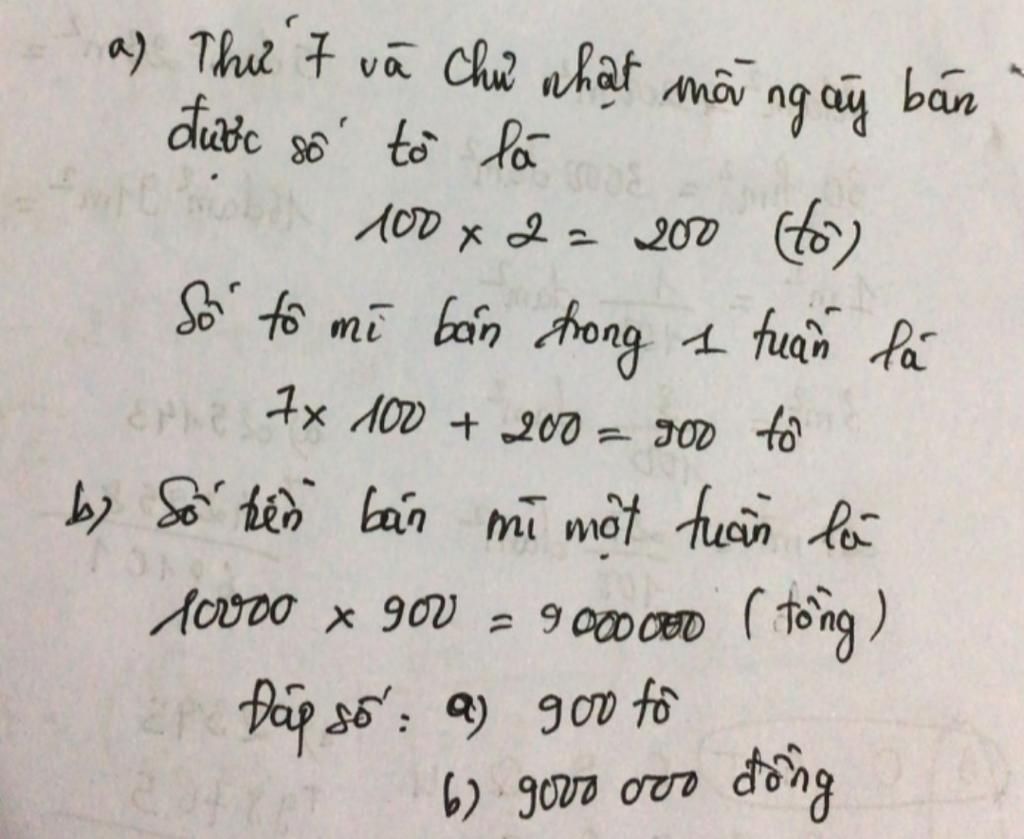 a) Thứ 7 và Chủ nhật mỗi ngày bán
được số tô là
100 x 2 = 200 (tô)
Số tô mì bán trong 1 tuần là
7 x 100 + 200 = 900 tô
b) Số tiền bán mì một tuần là
10000 x 900 = 9000000 (tồng)
Đáp số: a) 900 tô
b) 9000 000 đồng